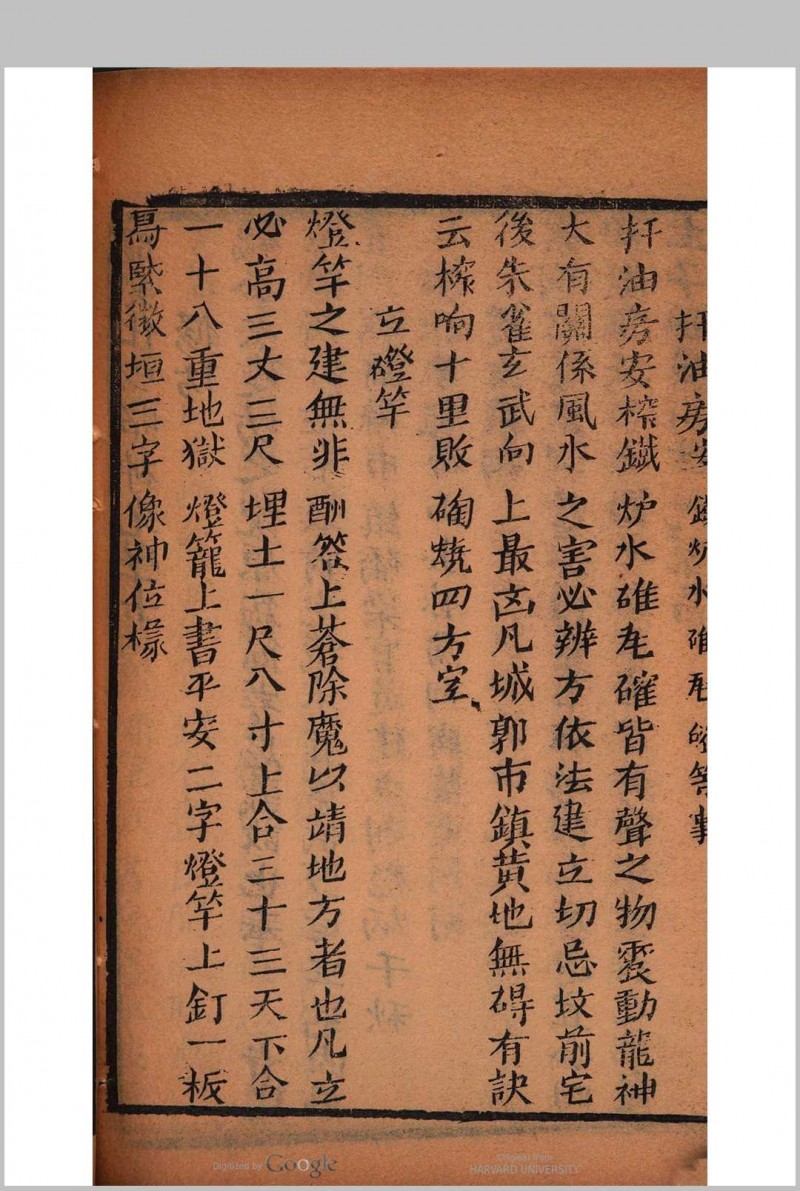 扞油房安鐵炉水碓瓦磘等事
扞油房安榨鐵炉水碓瓦礭皆有聲之物震動龍神
大有關係風水之害必辨方依法建立切忌坟前宅
後朱雀玄武向上最凶凡城郭市鎮黄地無碍有訣
云榨响十里敗陶燒四方空
立磴竿
燈竿之建無非酬答上蒼除魔以靖地方者也凡立
必高三丈三尺埋土一尺八寸上合三十三天下合
一十八重地獄燈籠上書平安二字燈竿上釘一板
寫緊微垣三字像神位樣
Digitized by Google
Original from
HARVARD UNIVERSITY